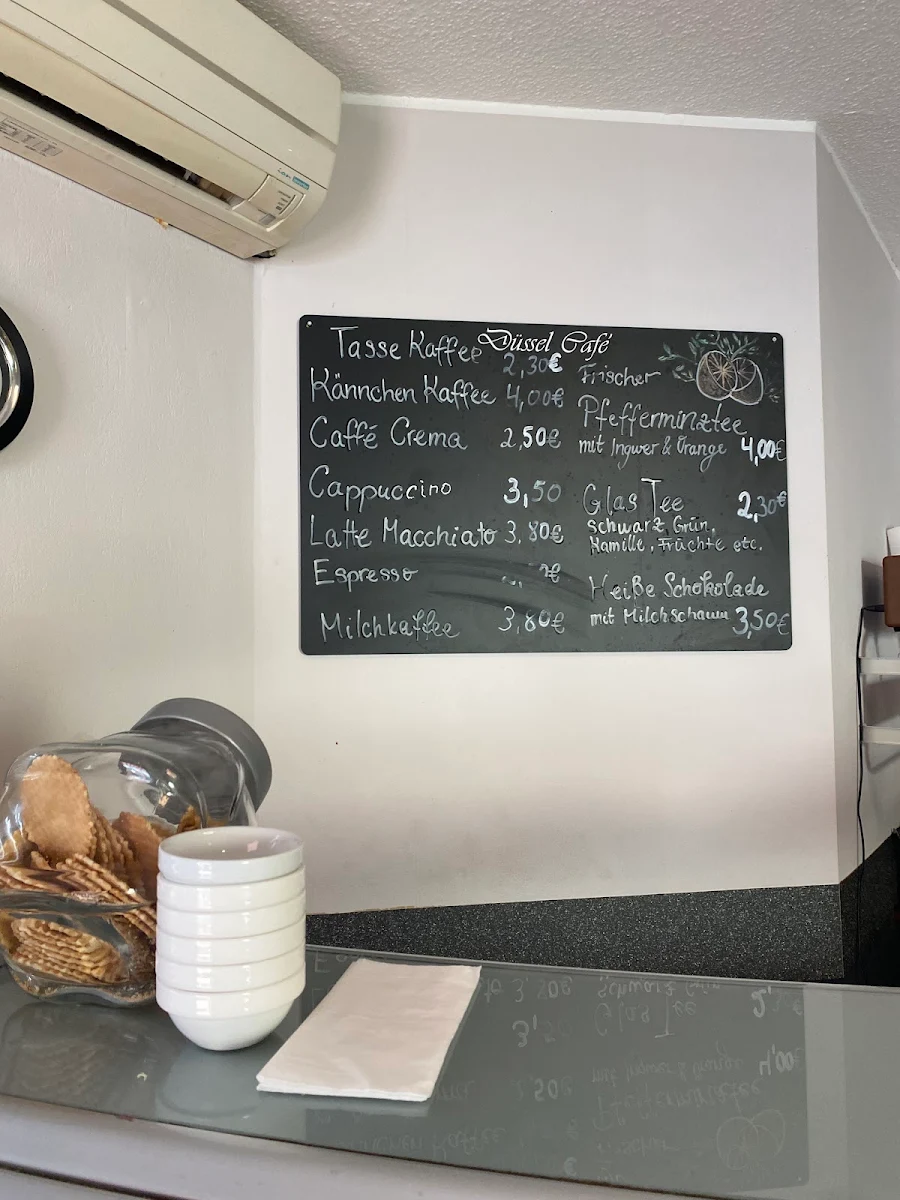 Düssel Café
Tasse Kaffee 2,30€
Kännchen Kaffee 4,00€
Caffé Crema 2,50€
Cappuccino 3,50
Latte Macchiato 3,80€
Espresso
Milchkaffee 3,80€
Frischer
Pfefferminztee
mit Ingwer & Orange 4,00€
Glas Tee 2,30€
Schwarz, Grün,
Kamille, Früchte etc.
Heiße Schokolade
mit Milchschaum 3,50€